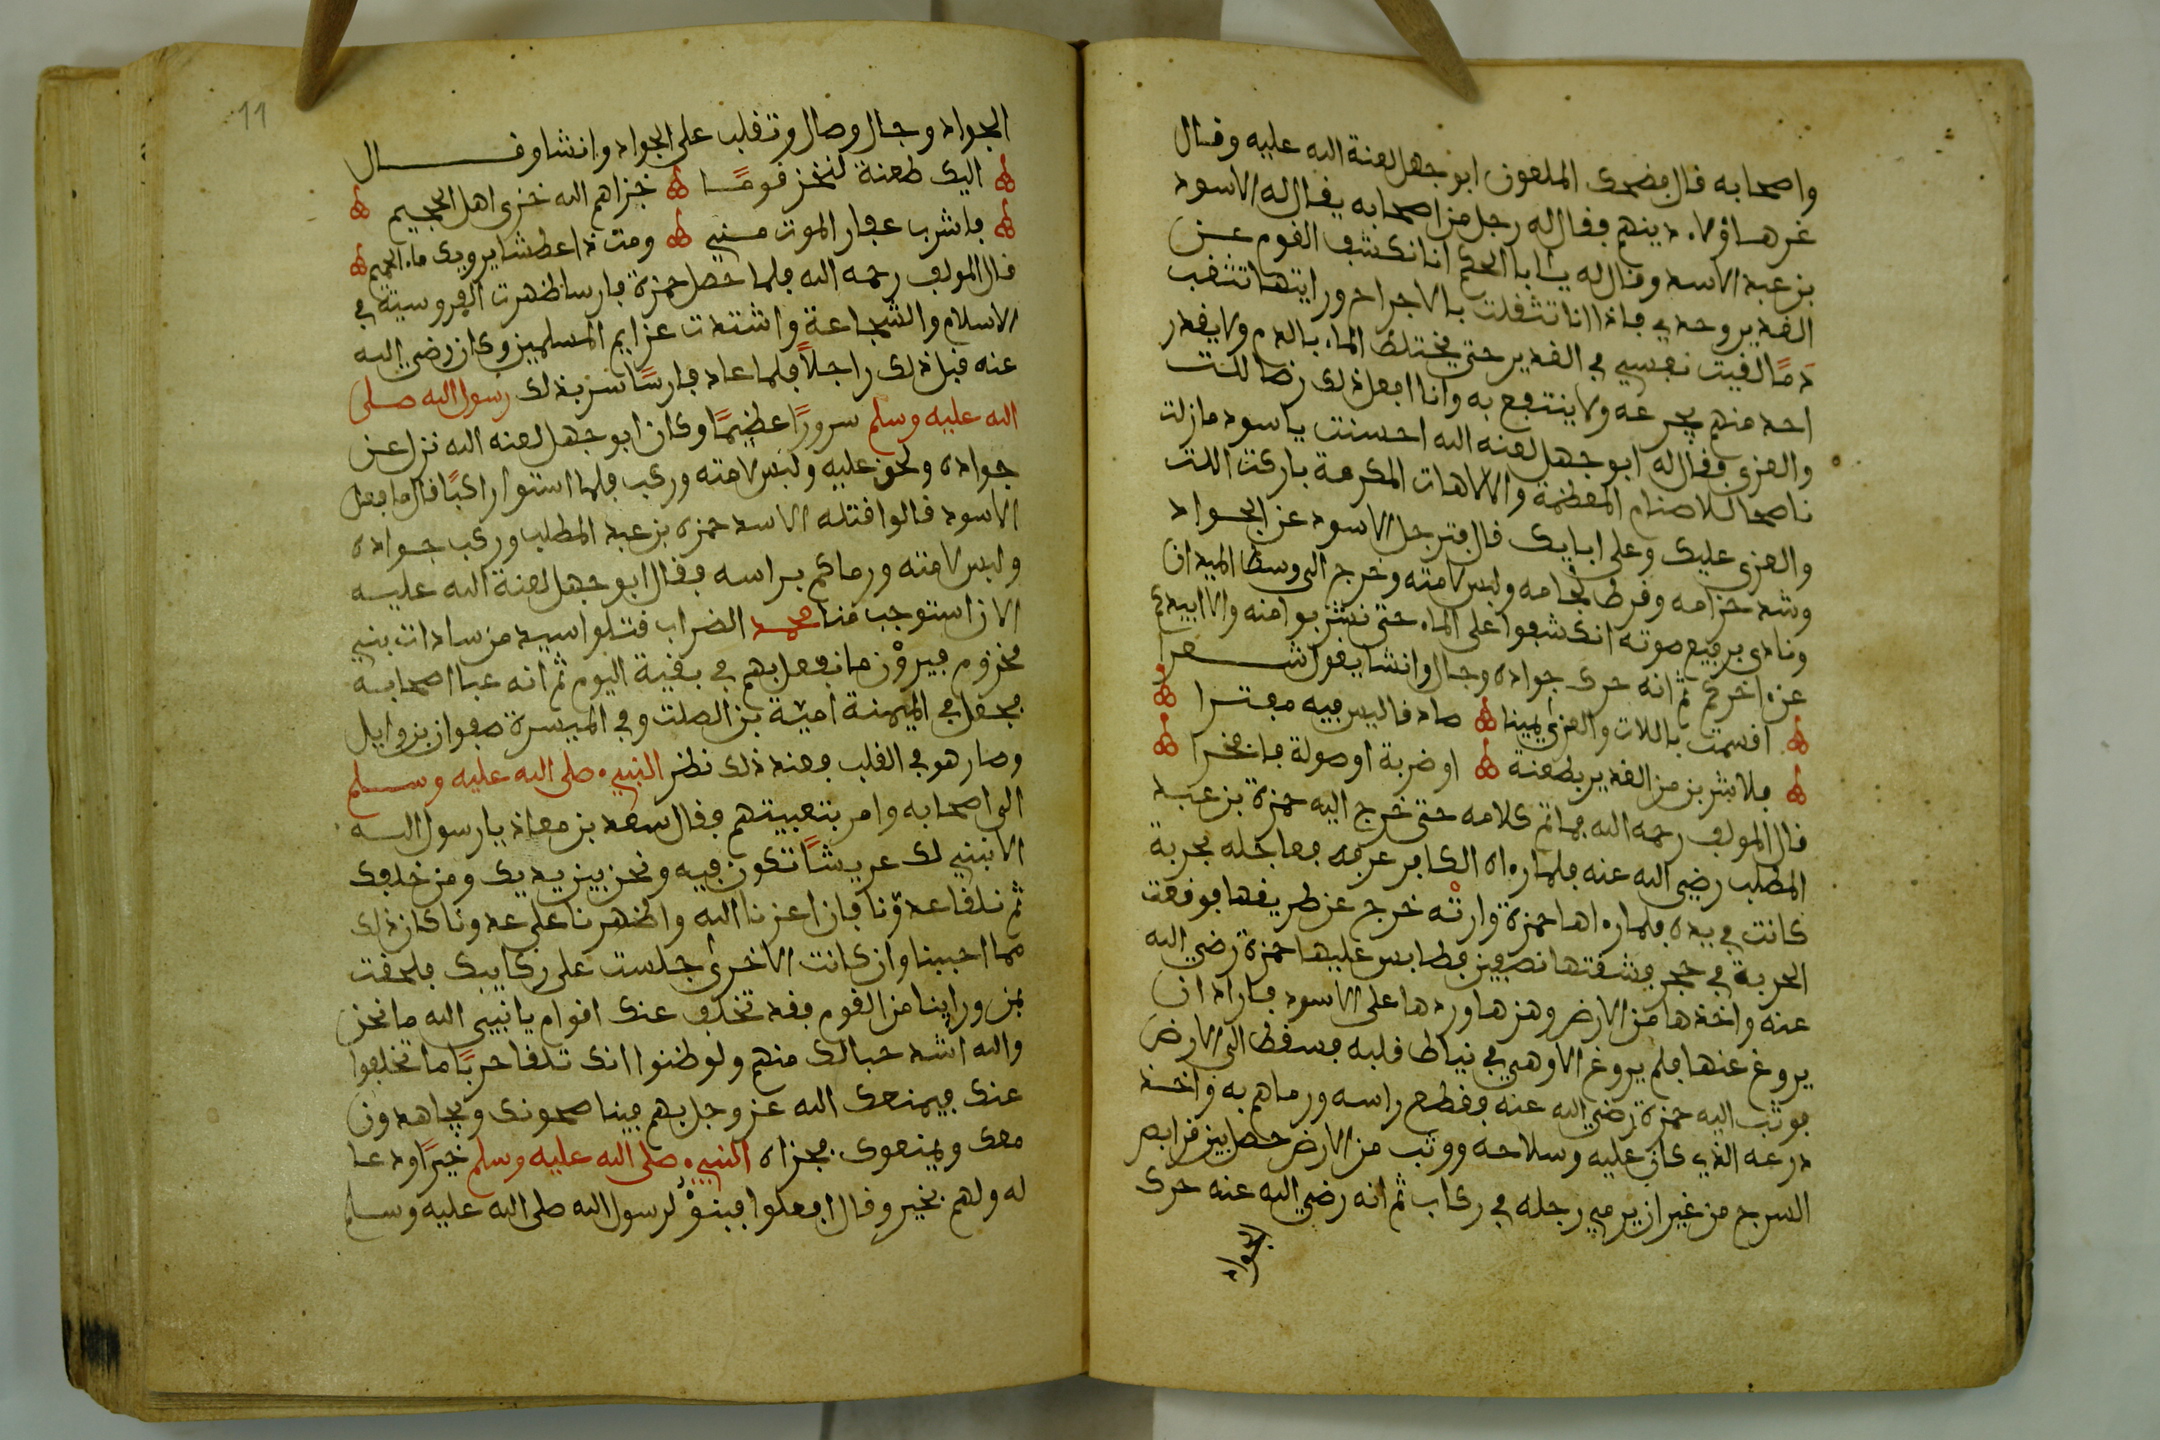 واصحابه قال فضحك الملعون ابو جهل لعنة الله عليه وقال
غر هاؤلاء دينهم فقال له رجل من اصحابه يقال له الاسود
بن عبد الاسد وقال له يا ابا الحكم انا نكشف القوم عن
الغدير وحدي فاذا انا تثقلت بالاجراح ورايتها تثغب
دمًا لقيت نفسي في الغدير حتى يختلط الماء بالدم ولا يقدر
احد منهم يجرعه ولا ينتفع به وانا افعل ذلك رضا للت
والعزى فقال له ابو جهل لعنه الله احسنت ياسود مازلت
ناصحا للاصنام المعظمة والالاهات المكرمة باركت اللت
والعزى عليك وعلى ابايك قال فترجل الاسود عن الجواد
وشد حزامه وفرط لجامه ولبس لامته وخرج الى وسط الميدان
ونادى برفيع صوته انكشفوا على الماء حتى نشربوا منه والا ابيدكم
عن اخركم ثم انه حرك جواده وجال وانشا يقول شعرا
اقسمت باللات والعزى يمينا صادقا ليس فيه مفترا
فلاشربن من الغدير بطعنة او ضربة او صولة فانخرا
قال المولف رحمه الله فماتم كلامه حتى خرج اليه حمزة بن عبد
المطلب رضي الله عنه فلما راه الكافر عرفه فعاجله بحربة
كانت في يده فلما راها حمزة وارته خرج عن طريقها فوقعت
الحربة في حجر فشقتها نصفين فطابس عليها حمزة رضي الله
عنه واخذها من الارض وهزها وردها على الاسود فاراد ان
يروغ عنها فلم يروغ الا وهي في نياط قلبه فسقط الى الارض
فوثب اليه حمزة رضي الله عنه فقطع راسه ورماهم به واخذ
درعه الذي كان عليه وسلاحه ووثب من الارض حصل بين قرابص
السرج من غير ان يرمي رجله في ركاب ثم انه رضي الله عنه حرك
الجواد
11
الجواد وجال وصال وتقلب على الجواد وانشا وقال
اليك طعنة لنخز قومًا خزاهم الله خزى اهل الجحيم
فاشرب عقار الموت مني ومت ذا عطشا يرويك ماء الحميم
قال المولف رحمه الله فلما حصل حمزة فارسا ظهرت الفروسية في
الاسلام والشجاعة واشتدت عزايم المسلمين وكان رضي الله
عنه قبل ذلك راجلًا فلما عاد فارسًا سر بذلك رسول الله صلى
الله عليه وسلم سرورًا عظيمًا وكان ابو جهل لعنه الله نزل عن
جواده ولحق عليه ولبس لامته وركب فلما استوا راكبًا قال ما فعل
الاسود قالوا قتله الاسد حمزه بن عبد المطلب وركب جواده
ولبس لامته ورماكم براسه فقال ابو جهل لعنة الله عليه
الان استوجب منا محمد الضراب قتلوا سيد من سادات بني
مخزوم فيرون ما نفعل بهم في بقية اليوم ثم انه عبا اصحابه
فجعل في الميمنة امية بن الصلت وفي الميسرة صفوان بن وايل
وصار هو في القلب فعند ذلك نظر النبيء صلى الله عليه وسلم
الى اصحابه وامر بتعبيتهم فقال سعد بن معاذ يا رسول الله
الا نبني لك عريشًا تكون فيه ونحن بين يديك ومن خلفك
ثم نلقا عدونا فان اعزنا الله واظهرنا على عدونا كان ذلك
مما احببنا وان كانت الاخرى جلست على ركايبك فلحقت
بمن وراينا من القوم فقد تخلف عنك اقوام يا نبيي الله ما نحن
والله اشد حبا لك منهم ولو ظنوا انك تلقا حربًا ما تخلفوا
عنك فيمنعك الله عز وجل بهم فيناصحونك ويجاهدون
معك ويمنعوك فجزاه النبيء صلى الله عليه وسلم خيرًا ودعا
له ولهم بخير وقال افعلوا فبنوْ لرسول الله صلى الله عليه وسلم